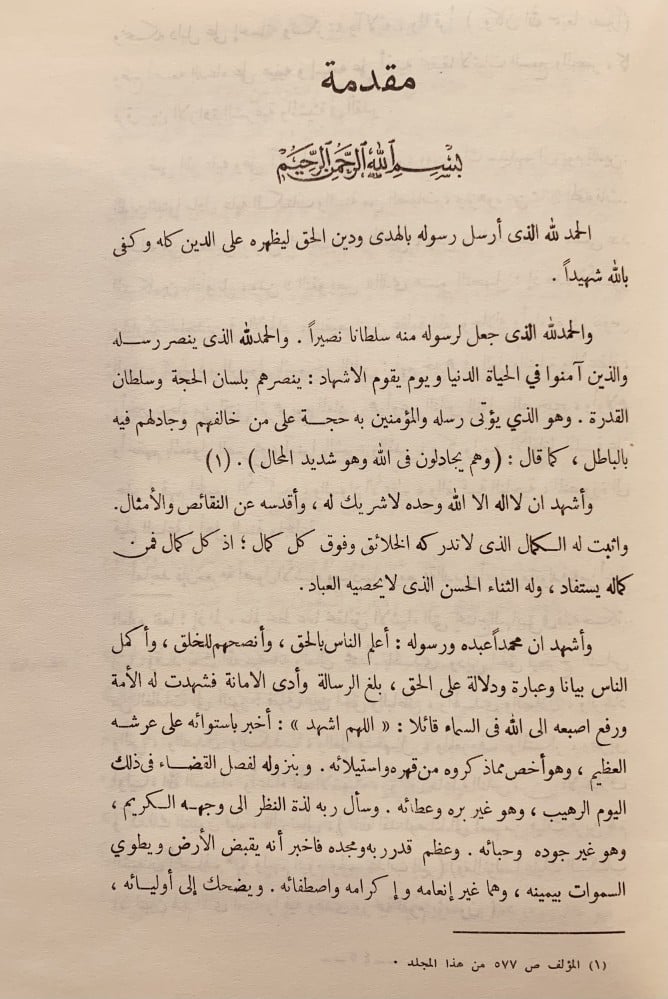 مقدمة
بسم الله الرحمن الرحيم
الحمد لله الذى أرسل رسوله بالهدى ودين الحق ليظهره على الدين كله وكفى
بالله شهيداً .
والحمدلله الذى جعل لرسوله منه سلطانا نصيراً . والحمدلله الذى ينصر رسله
والذين آمنوا في الحياة الدنيا ويوم يقوم الاشهاد : ينصرهم بلسان الحجة وسلطان
القدرة . وهو الذي يؤتى رسله والمؤمنين به حجة على من خالفهم وجادلهم فيه
بالباطل ، كما قال : ( وهم يجادلون فى الله وهو شديد المحال ) . (١)
وأشهد ان لااله الا الله وحده لاشريك له ، وأقدسه عن النقائص والأمثال.
واثبت له الكمال الذى لاتدركه الخلائق وفوق كل كمال ؛ اذ كل كمال فمن
كماله يستفاد ، وله الثناء الحسن الذى لايحصيه العباد .
وأشهد ان محمداً عبده ورسوله : أعلم الناس بالحق ، وأنصحهم للخلق ، وأكمل
الناس بيانا وعبارة ودلالة على الحق ، بلغ الرسالة وأدى الامانة فشهدت له الأمة
ورفع اصبعه الى الله فى السماء قائلا : « اللهم اشهد » : أخبر باستوائه على عرشه
العظيم ، وهو أخص مماذكروه من قهره واستيلائه . وبنزوله لفصل القضاء فى ذلك
اليوم الرهيب ، وهو غير بره وعطائه . وسأل ربه لذة النظر الى وجهه الكريم ،
وهو غير جوده وحبائه . وعظم قدر ربه ومجده فاخبر أنه يقبض الأرض ويطوي
السموات بيمينه ، وهما غير إنعامه وإكرامه واصطفائه . ويضحك إلى أوليائه ،
(١) المؤلف ص ٥٧٧ من هذا المجلد .